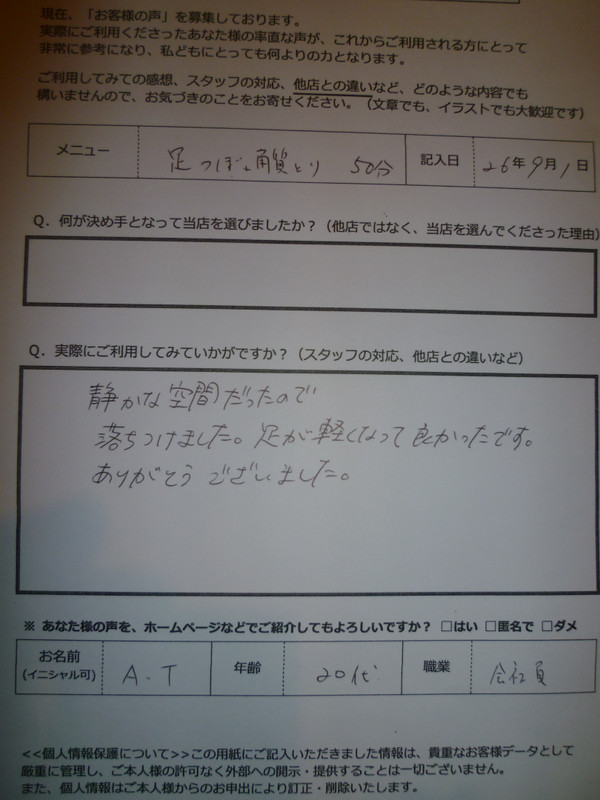 現在、「お客様の声」を募集しております。
実際にご利用くださったあなた様の率直な声が、これからご利用される方にとって
非常に参考になり、私どもにとっても何よりの力となります。
ご利用してみての感想、スタッフの対応、他店との違いなど、どのような内容でも
構いませんので、お気づきのことをお寄せください。（文章でも、イラストでも大歓迎です）
メニュー 足つぼ+角質とり 50分 記入日 26年9月1日
Q．何が決め手となって当店を選びましたか？（他店ではなく、当店を選んでくださった理由）
Q．実際にご利用してみていかがですか？（スタッフの対応、他店との違いなど）
静かな空間だったので
落ちつけました。足が軽くなって良かったです。
ありがとうございました。
※ あなた様の声を、ホームページなどでご紹介してもよろしいですか？ □はい □匿名で □ダメ
お名前 A.T 年齢 20代 職業 会社員
(イニシャル可)
<<個人情報保護について>>この用紙にご記入いただきました情報は、貴重なお客様データとして
厳重に管理し、ご本人様の許可なく外部への開示・提供することは一切ございません。
また、個人情報はご本人様からのお申出により訂正・削除いたします。